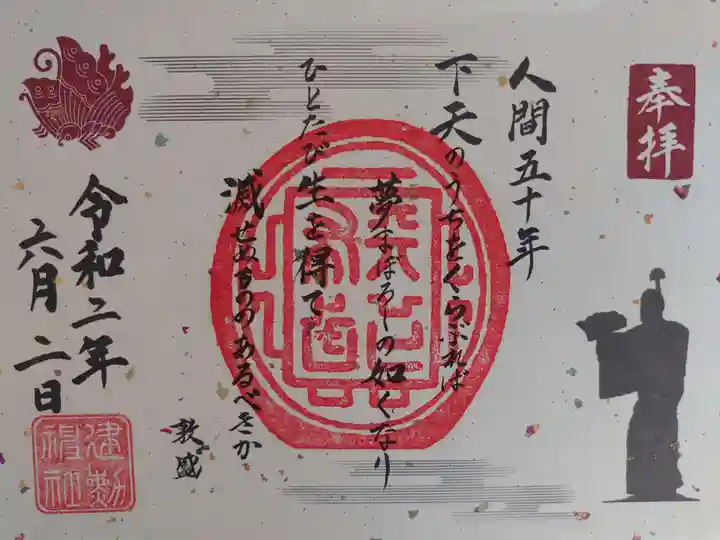 奉拝
人間五十年
下天のうちをくらぶれば
夢まぼろしの如くなり
ひとたび生を得て
滅せぬもののあるべきか
敦盛
令和二年
六月二日
建勲
神社